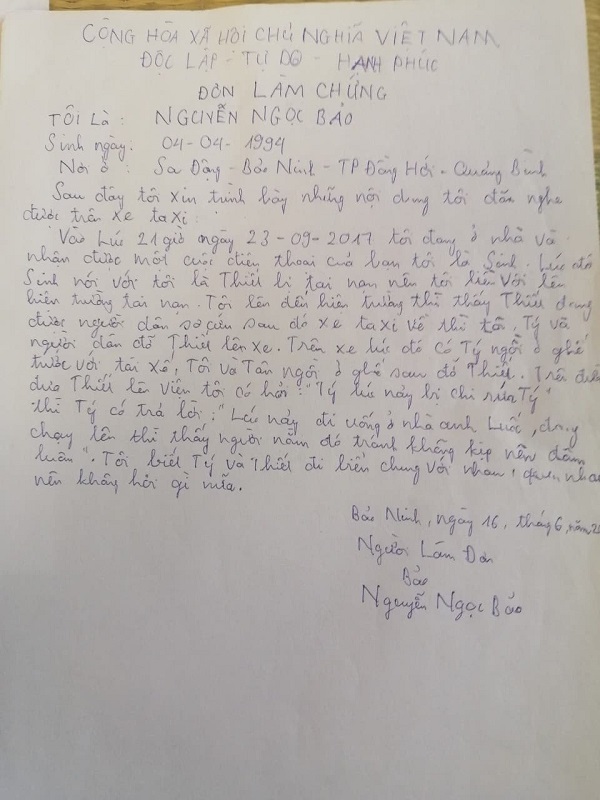 CỘNG HÒA XÃ HỘI CHỦ NGHĨA VIỆT NAM
ĐỘC LẬP - TỰ DO - HẠNH PHÚC
ĐƠN LÀM CHỨNG
TÔI LÀ : NGUYỄN NGỌC BẢO
Sinh ngày: 04-04-1994
Nơi ở : Sa Động - Bảo Ninh - TP Đồng Hới - Quảng Bình
Sau đây tôi xin trình bày những nội dung tôi đã nghe
được trên xe taxi:
Vào Lúc 21 giờ ngày 23-09-2017 tôi đang ở nhà và
nhận được một cuộc điện thoại của bạn tôi là Sinh. Lúc đó
Sinh nói với tôi là Thiết bị tai nạn nên tôi liền Với lên
hiện trường tai nạn. Tôi lên đến hiện trường thì thấy Thiết đang
được người dân sơ cứu sau đó xe taxi về thì tôi, Tý và
người dân đỡ Thiết lên xe. Trên xe lúc đó có Tý ngồi ở ghế
trước với tài xế, Tôi và Tân ngồi ở ghế sau đỡ Thiết. Trên
đưa Thiết lên viện tôi có hỏi: "Tý lúc này bị chi rứa Tý"
thì Tý có trả lời: "Lúc nảy đi uống ở nhà anh Luốc, đang
chạy lên thì thấy người nằm đó tránh không kịp nên đâm
luôn". Tôi biết Tý và Thiết đi biển chung với nhau, quen nhau
nên không hỏi gì nữa.
Bảo Ninh, ngày 16, tháng 6, năm
Người Làm Đơn
Bảo
Nguyễn Ngọc Bảo